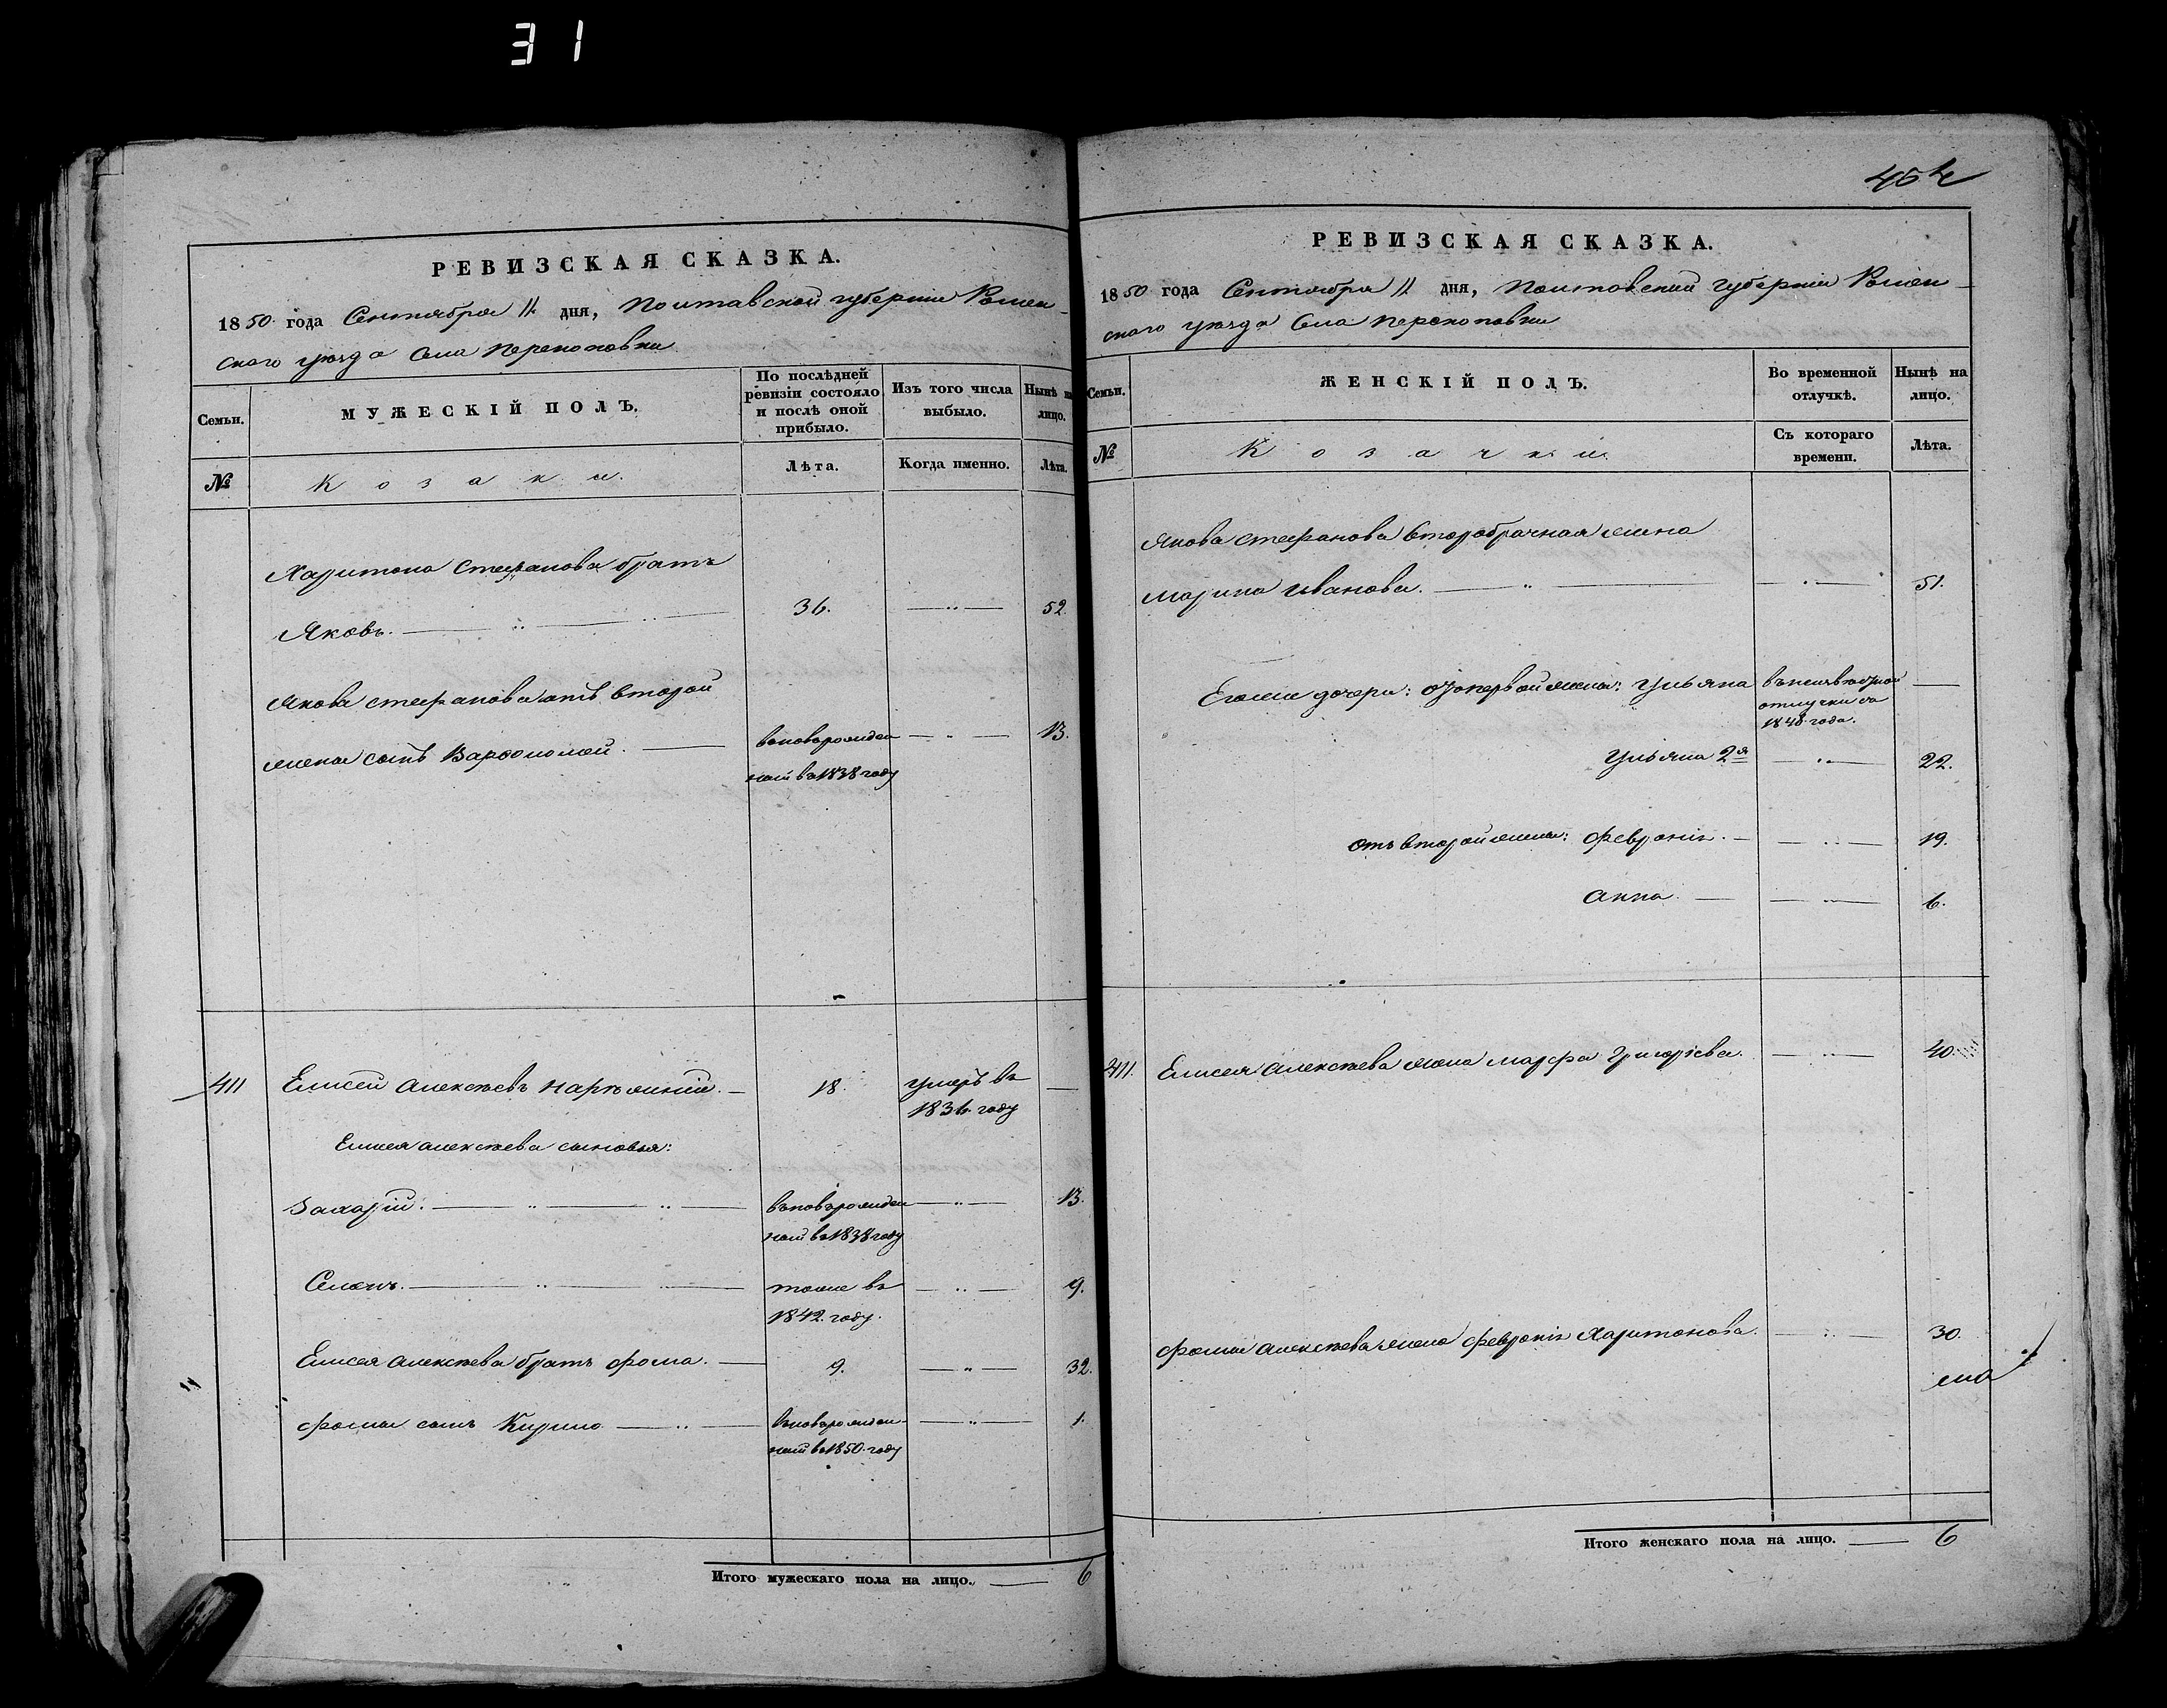 31
РЕВИЗСКАЯ СКАЗКА.
1850 года Сентября 11 дня, Полтавской губерніи Ромен-
ского уезда Села Перекоповки
Семьи.
МУЖЕСКІЙ ПОЛЪ.
По послѣдней ревизіи состояло и послѣ оной прибыло.
Изъ того числа выбыло.
Нынѣ на лицо.
№
Козаки.
Лѣта.
Когда именно.
Лѣта.
Харитона Стефанова братъ
Яковъ. 36. 52.
Якова Стефанова отъ второй
жены сынъ Варфоломей. вновь рожден 13.
ный въ 1838 году
411 Елисей Алексѣевъ 18. умеръ въ
1836 году
Елисея Алексѣева сыновья:
Захарій. вновь рожден 13.
ный въ 1838 году
Семенъ. тоже въ 9.
1842. году.
Елисея Алексѣева братъ Фома. 9. 32.
Фомы сынъ Кирило вновь рожден- 1.
ный въ 1850. году
Итого мужескаго пола на лицо. 6
454
РЕВИЗСКАЯ СКАЗКА.
1850 года Сентября 11 дня, Полтавской Губерніи Ромен-
ского уезда Села Перекоповки
Семьи.
ЖЕНСКІЙ ПОЛЪ.
Во временной отлучкѣ.
Нынѣ на лицо.
№
Козачки.
Съ котораго времени.
Лѣта.
Якова Стефанова второбрачная жена
Марина Иванова. 51.
Его же дочери: отъ первой жены: Ульяна
отлучки съ
1848 года.
Ульяна 2я 22.
отъ второй жены: Февронія. 19.
Анна. 6.
411. Елисея Алексѣева жена Марфа Григорьева. 40.
Фомы Алексѣева жена Февронія Харитонова. 30.
Итого женскаго пола на лицо. 6